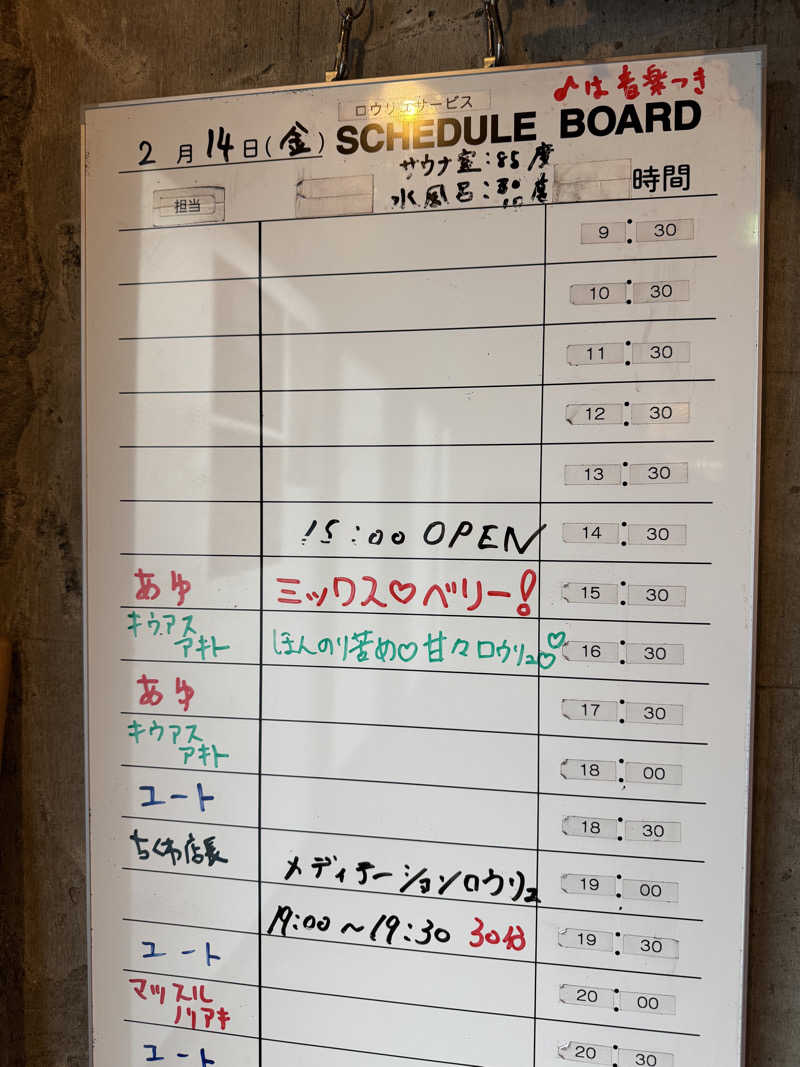 ♪は音楽つき
ロウリュサービス
2月14日(金) SCHEDULE BOARD
サウナ室:85度
担当 水風呂: 度 時間
9:30
10:30
11:30
12:30
13:30
15:00 OPEN 14:30
あゆ ミックス♡ベリー! 15:30
キウアス
アキト ほんのり苦め♡甘々ロウリュ♡♡ 16:30
あゆ 17:30
キウアス
アキト 18:00
ユート 18:30
ちくわ店長 メディテーションロウリュ 19:00
19:00〜19:30 30分
ユート 19:30
マッスル
ノリアキ 20:00
ユート 20:30